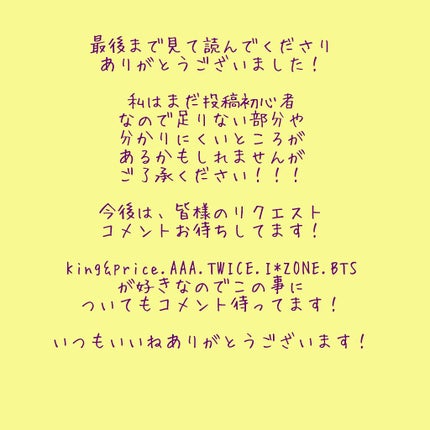 最後まで見て読んでくださり
ありがとうございました！
私はまだ投稿初心者
なので足りない部分や
分かりにくいところが
あるかもしれませんが
ご了承ください！！！
今後は、皆様のリクエスト
コメントお待ちしてます！
king&price.AAA.TWICE.I*ZONE.BTS
が好きなのでこの事に
ついてもコメント待ってます！
いつもいいねありがとうございます！